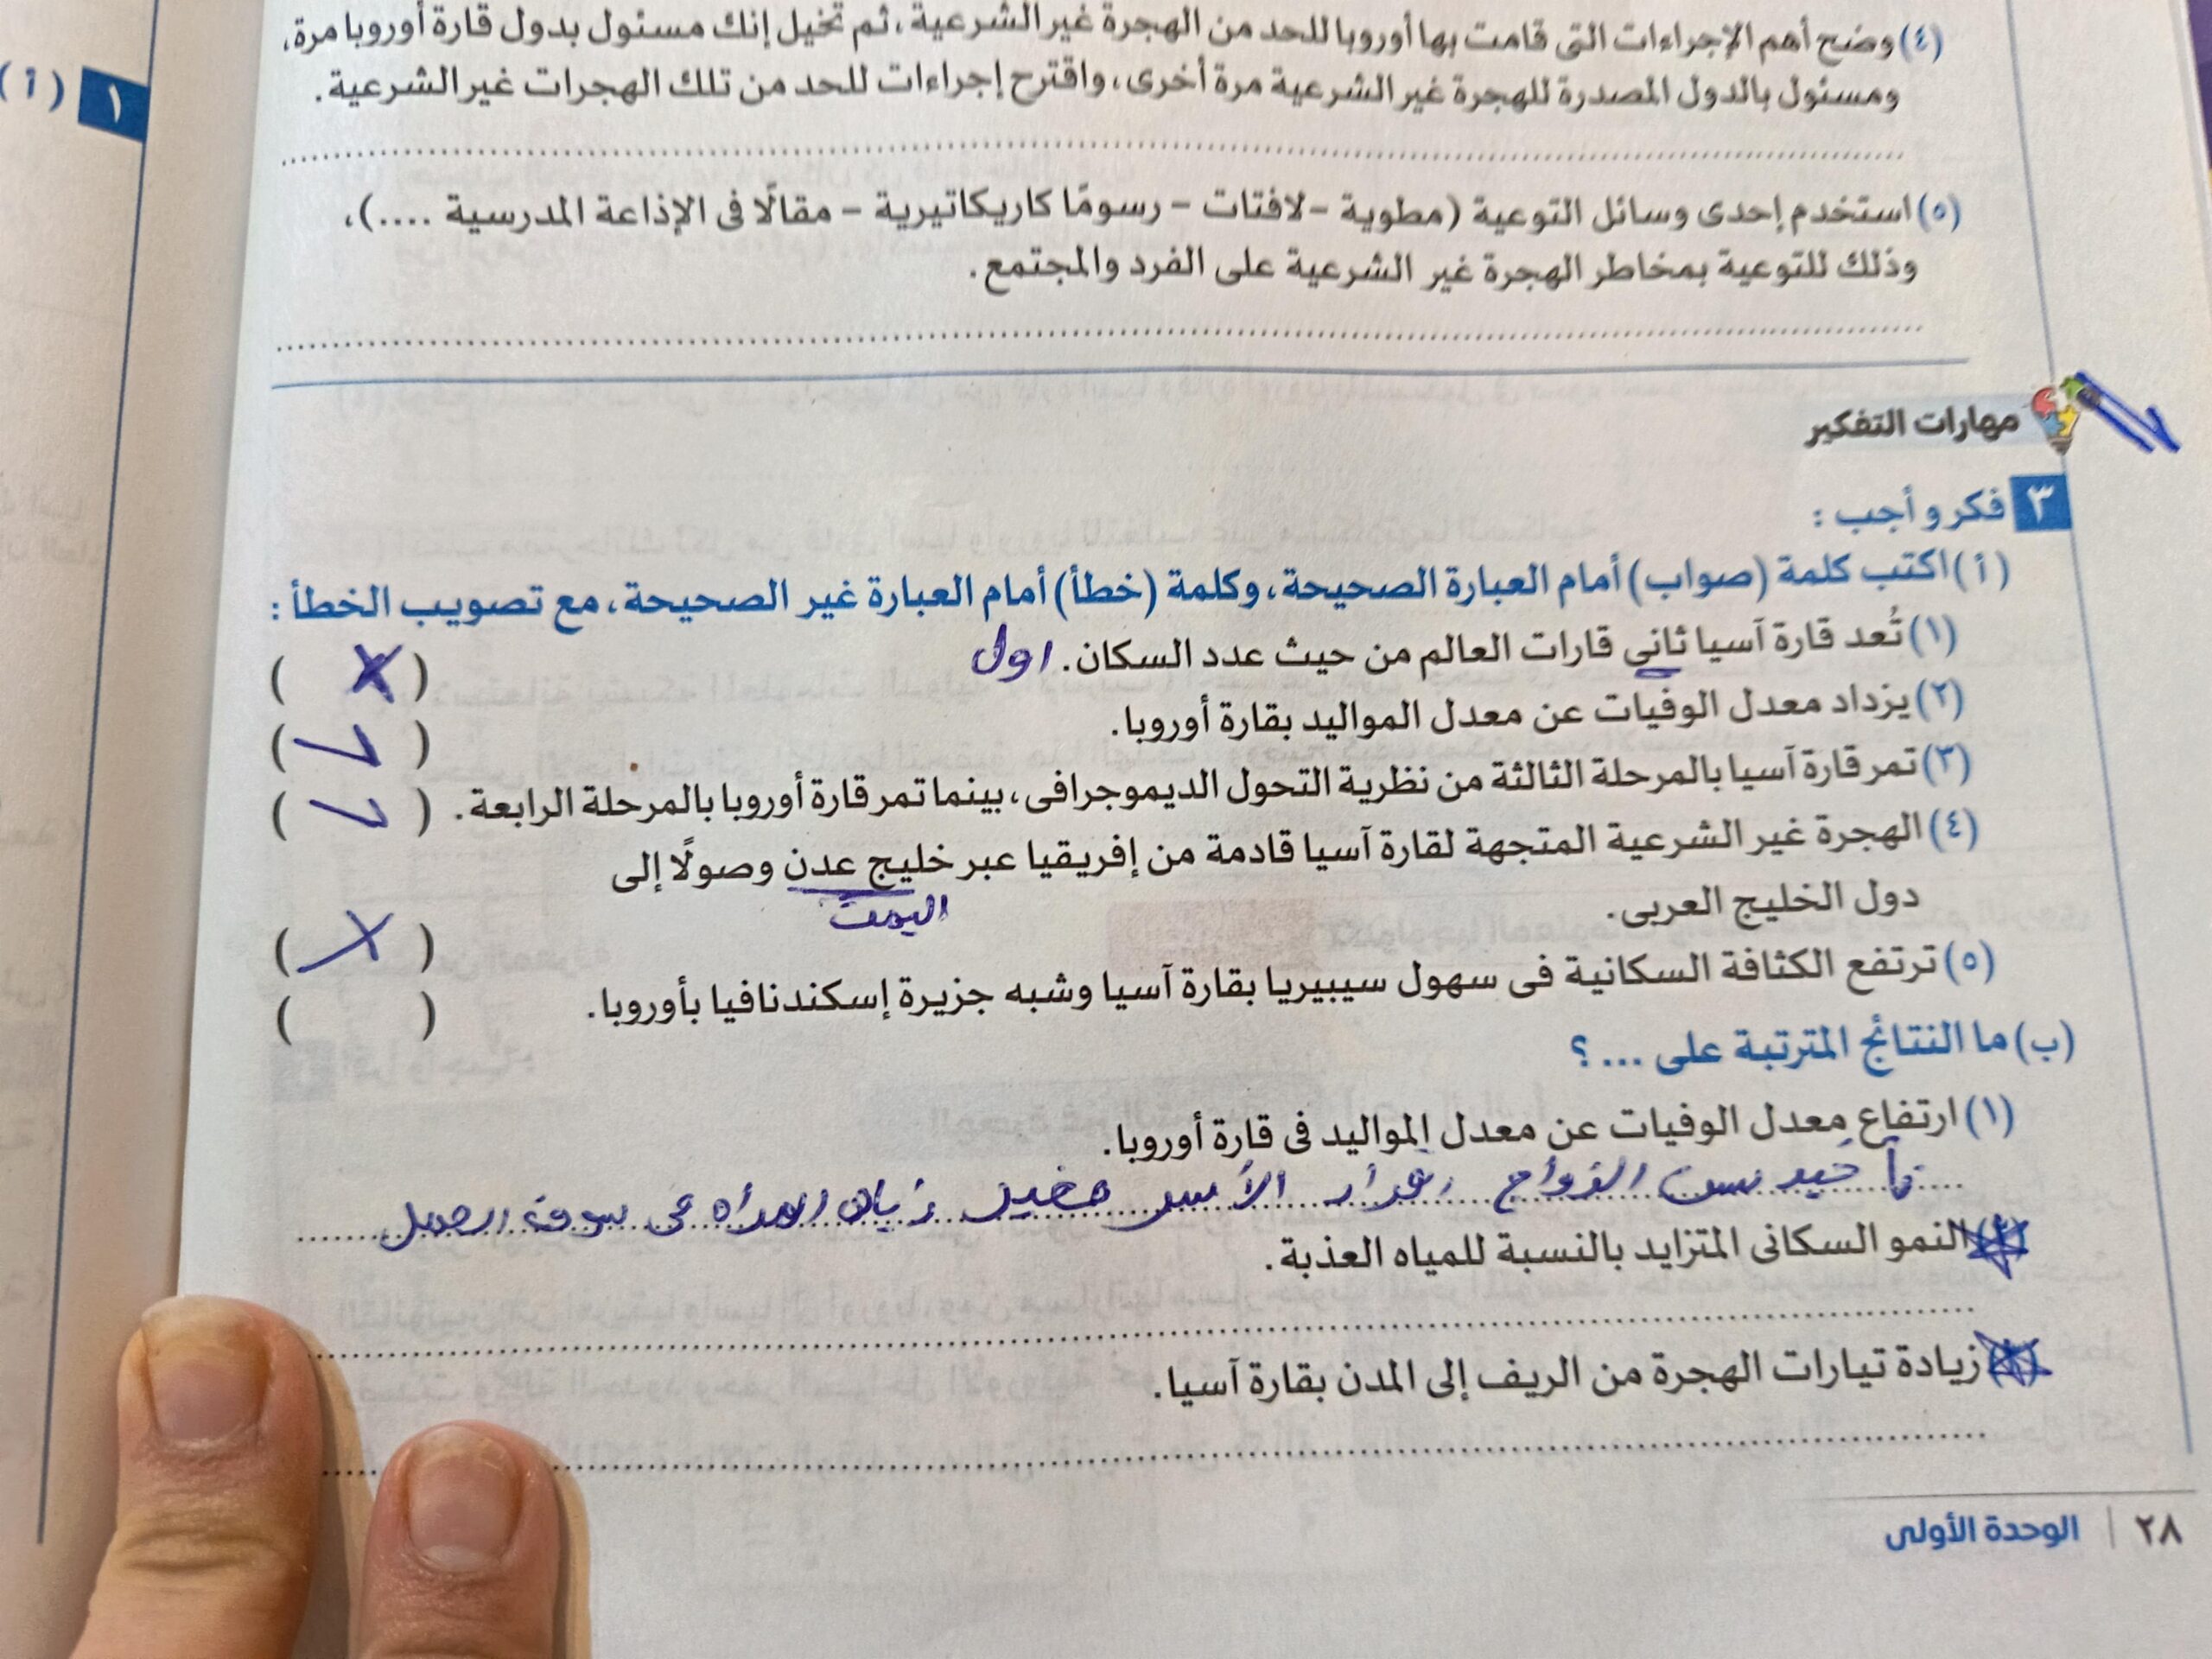 (٤) وضح أهم الإجراءات التى قامت بها أوروبا للحد من الهجرة غير الشرعية، ثم تخيل إنك مسئول بدول قارة أوروبا مرة،
ومسئول بالدول المصدرة للهجرة غير الشرعية مرة أخرى، واقترح إجراءات للحد من تلك الهجرات غير الشرعية.
(٥) استخدم إحدى وسائل التوعية (مطوية - لافتات - رسومًا كاريكاتيرية - مقالًا فى الإذاعة المدرسية ....)،
وذلك للتوعية بمخاطر الهجرة غير الشرعية على الفرد والمجتمع.
مهارات التفكير
٣ فكر و أجب :
(أ) اكتب كلمة (صواب) أمام العبارة الصحيحة، وكلمة (خطأ) أمام العبارة غير الصحيحة، مع تصويب الخطأ :
(١) تُعد قارة آسيا ثانى قارات العالم من حيث عدد السكان. اول ( X )
(٢) يزداد معدل الوفيات عن معدل المواليد بقارة أوروبا. ( ✓ )
(٣) تمر قارة آسيا بالمرحلة الثالثة من نظرية التحول الديموجرافى، بينما تمر قارة أوروبا بالمرحلة الرابعة. ( ✓ )
(٤) الهجرة غير الشرعية المتجهة لقارة آسيا قادمة من إفريقيا عبر خليج عدن وصولًا إلى
اليمن
دول الخليج العربى. ( X )
(٥) ترتفع الكثافة السكانية فى سهول سيبيريا بقارة آسيا وشبه جزيرة إسكندنافيا بأوروبا. ( )
(ب) ما النتائج المترتبة على ... ؟
(١) ارتفاع معدل الوفيات عن معدل المواليد فى قارة أوروبا.
تأخير سن الزواج الأسر المرأه فى سوق العمل
النمو السكانى المتزايد بالنسبة للمياه العذبة.
زيادة تيارات الهجرة من الريف إلى المدن بقارة آسيا.
٢٨ | الوحدة الأولى
١ (أ)